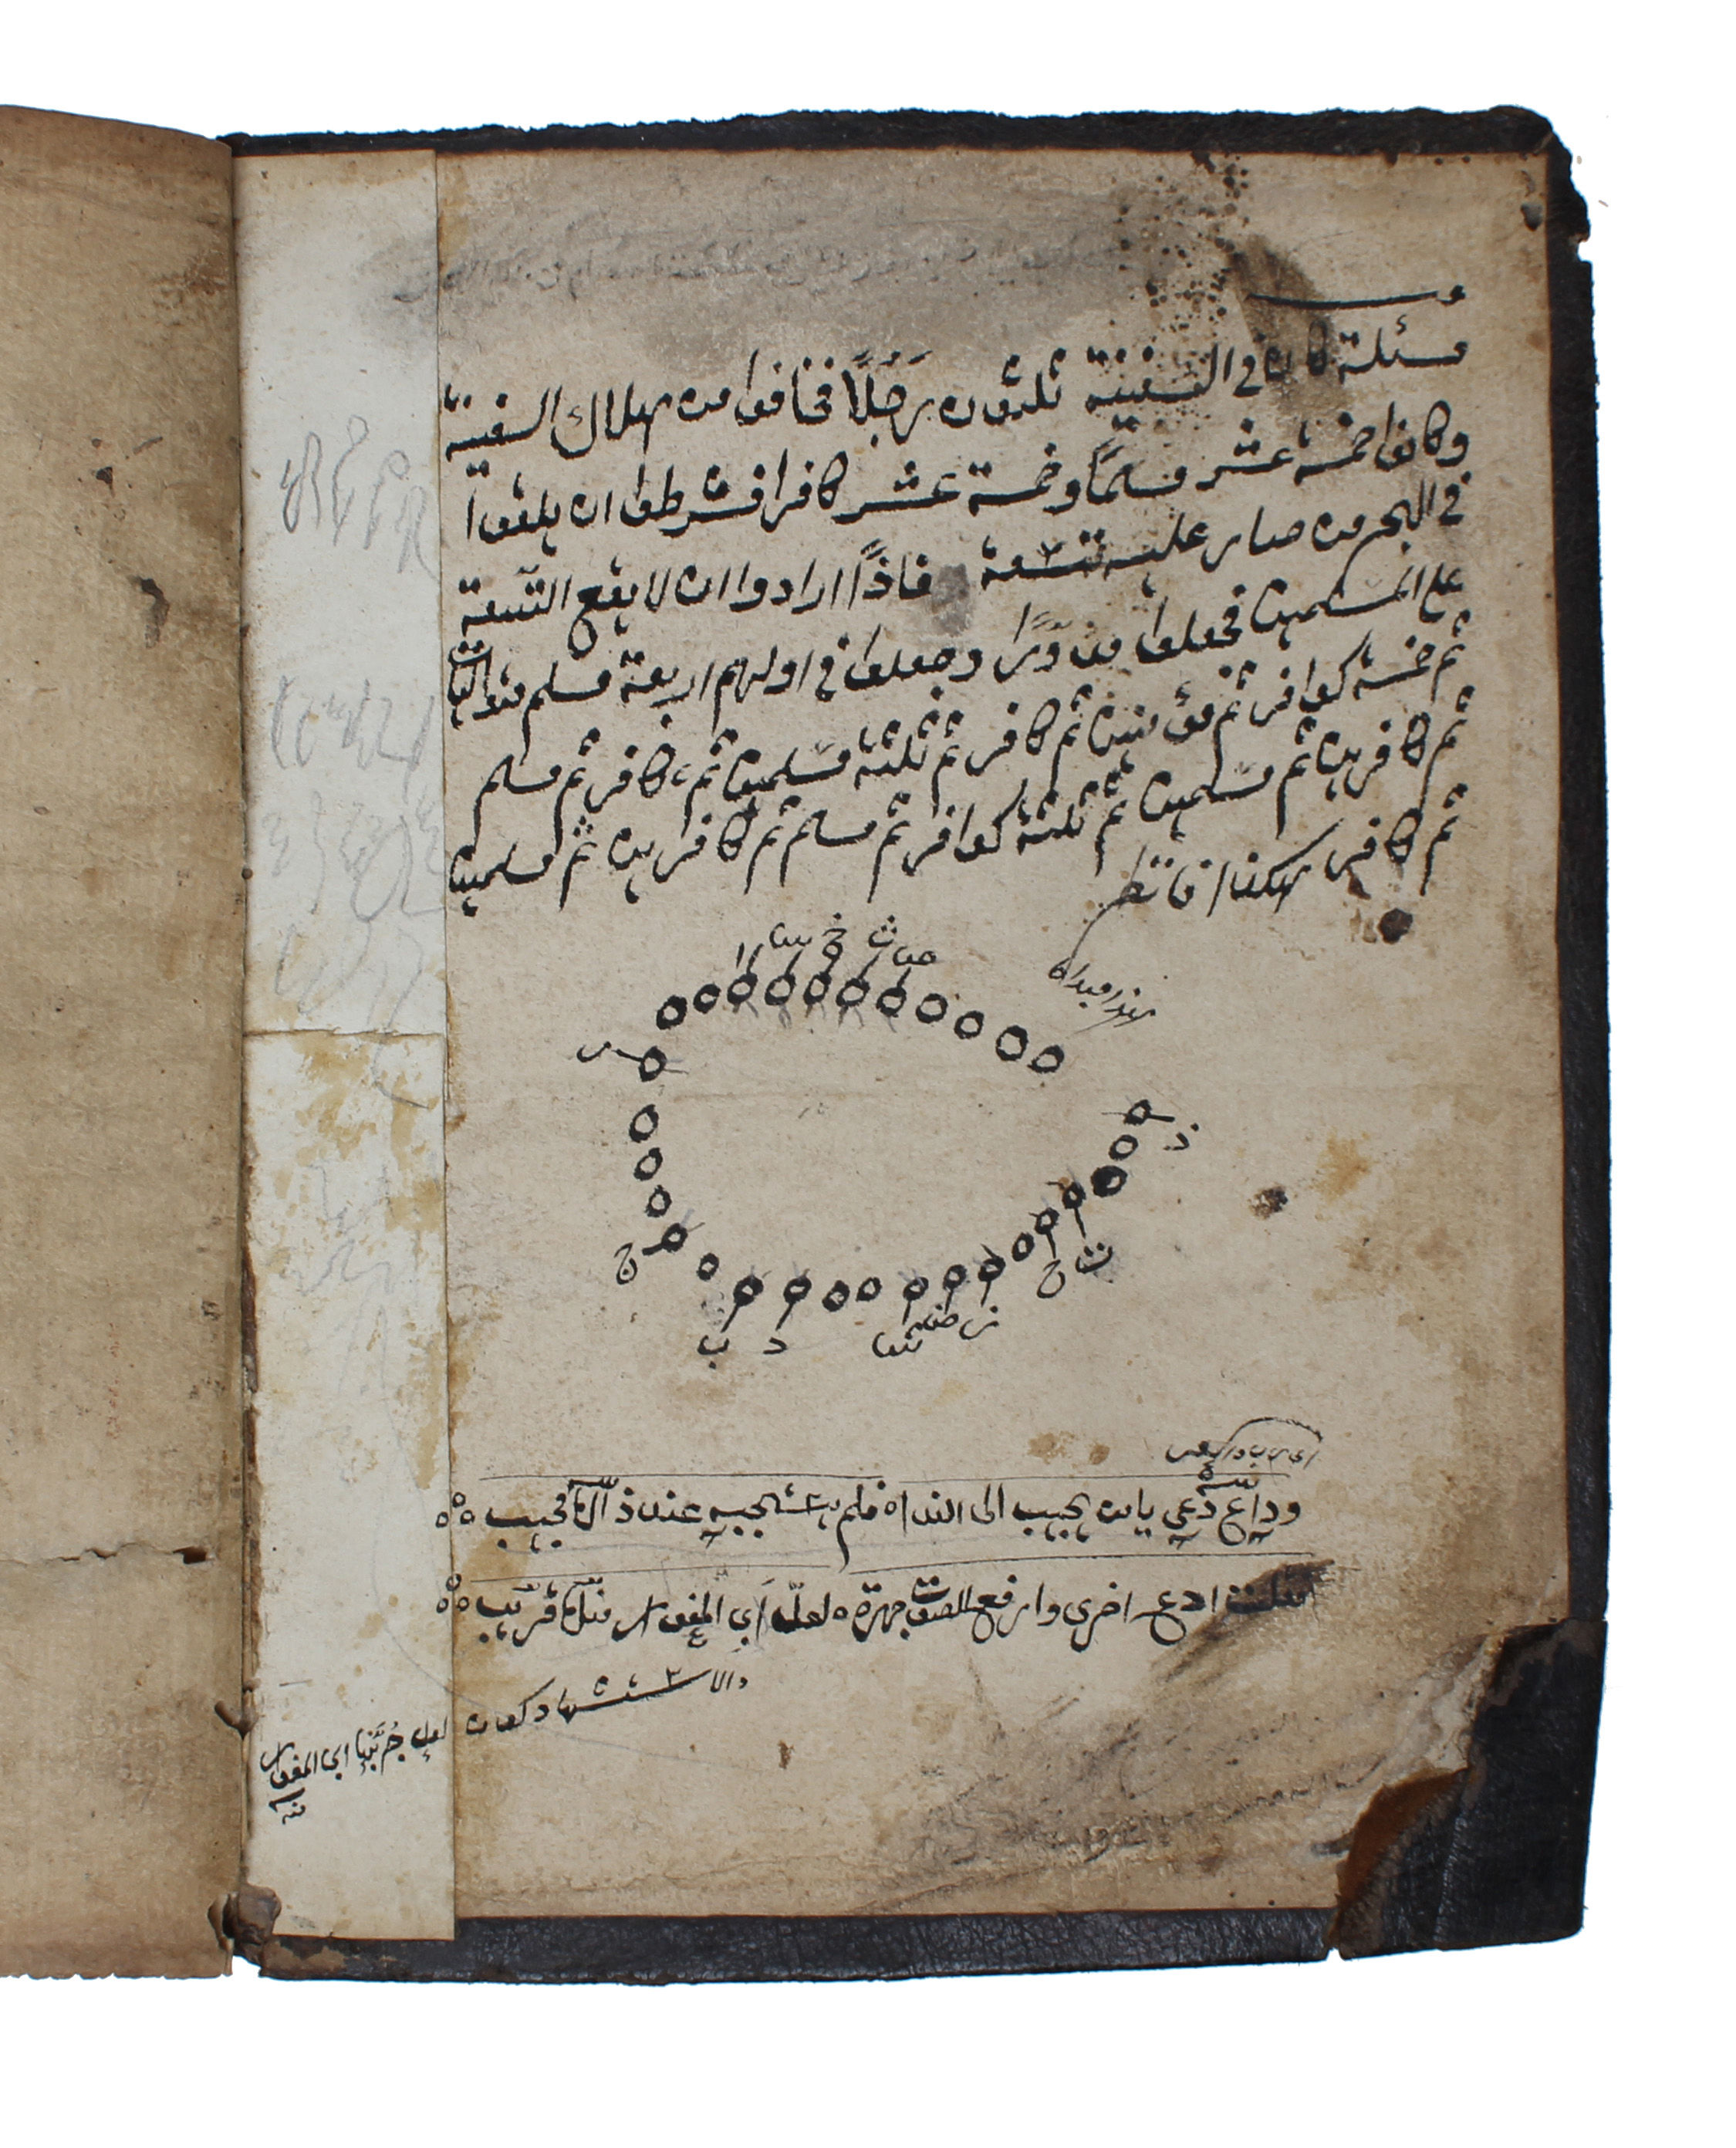 مسئلة كان في السفينة ثلثون رَجُلًا فخافوا من هلاك السفينة
وكانوا خمسة عشر مسلمًا وخمسة عشر كافرا فشرطوا ان يلقوا
في البحر من صار عليه تسعة فاذًا ارادوا ان لا يقع التسعة
على المسلمين فجعلوا مدوّرًا وجعلوا في اولهم اربعة مسلم متواليات
ثم خمسة كوافر ثم مؤمنين ثم كافر ثم ثلثة مسلمين ثم كافر ثم مسلم
ثم كافرين ثم مسلمين ثم ثلثة كوافر ثم مسلم ثم كافرين ثم مسلمين
ثم كافر هكذا فانظر
هذا مبداه
وداع دعي يا من يجيب الى النداه فلم يستجبه عند ذاك مجيب
فقلت ادع اخرى وارفع الصوت جهرة لعل ابي المغوار منك قريب
والاستشهاد كون لعل جُرَّ بها ابي المغوار
منه